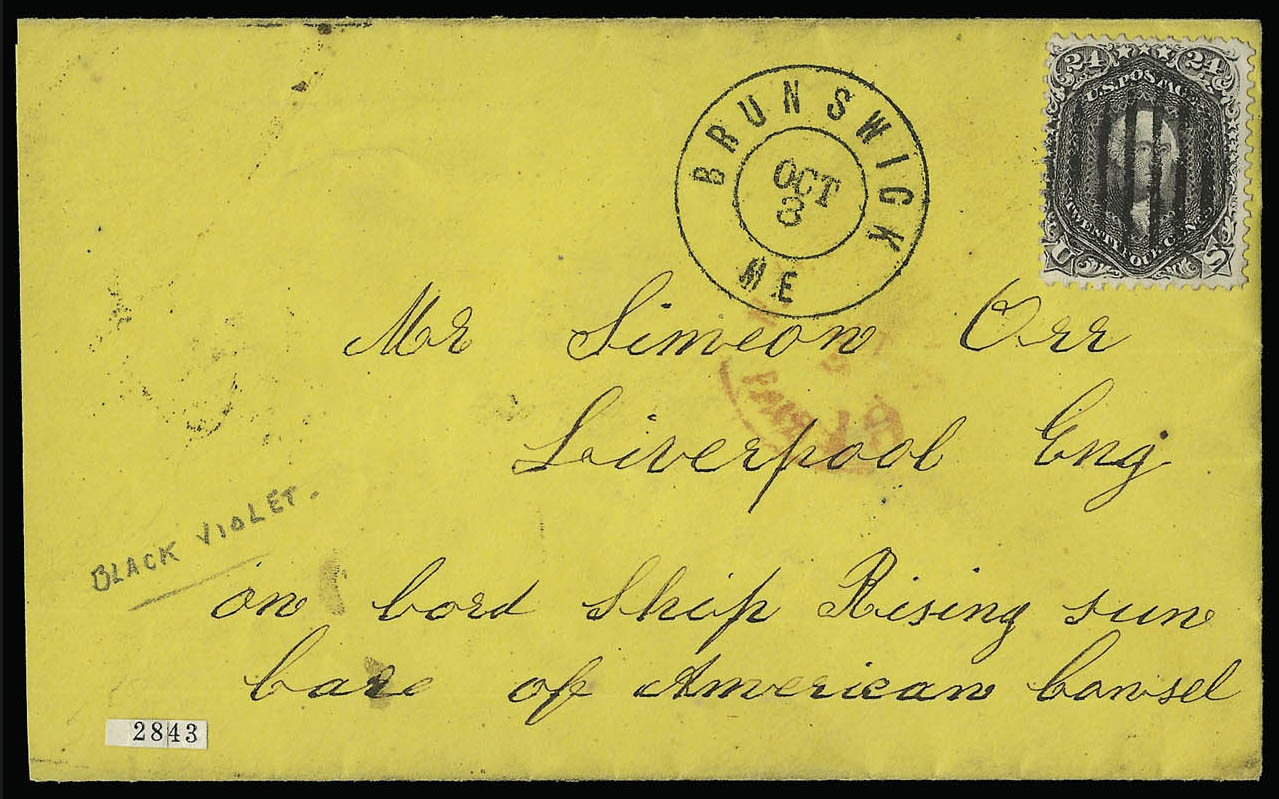 24 24
U.S. POSTAGE
U S
BRUNSWICK
OCT
8
ME
Mr Simeon Orr
Liverpool Eng
BLACK VIOLET.
on bord Ship Rising sun
Care of American Consel
2843